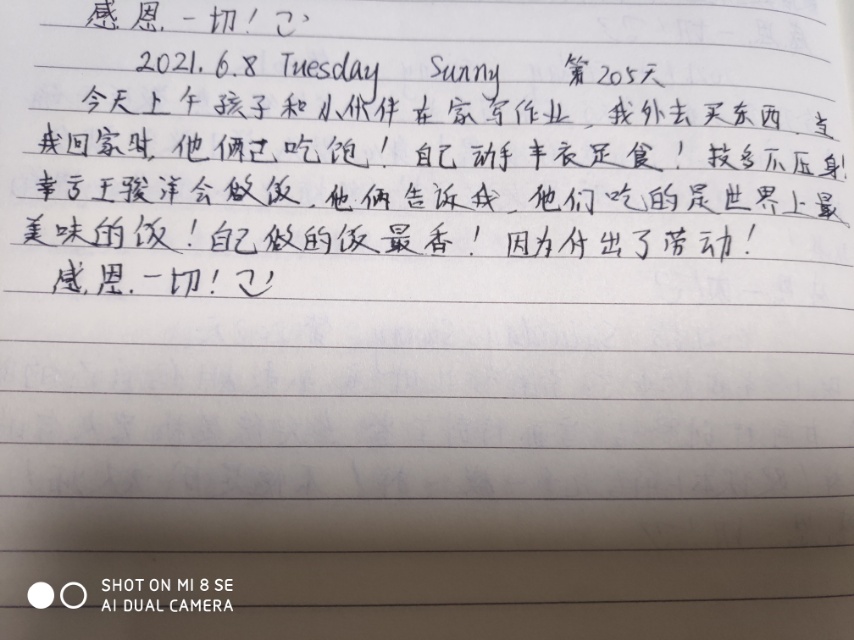 感恩一切!
2021.6.8 Tuesday Sunny 第205天
今天上午孩子和小伙伴在家写作业,我外去买东西,当
我回家时,他俩已吃饱!自己动手丰衣足食!技多不压身!
幸亏王骏洋会做饭,他俩告诉我,他们吃的是世界上最
美味的饭!自己做的饭最香!因为付出了劳动!
感恩一切!
SHOT ON MI 8 SE
AI DUAL CAMERA